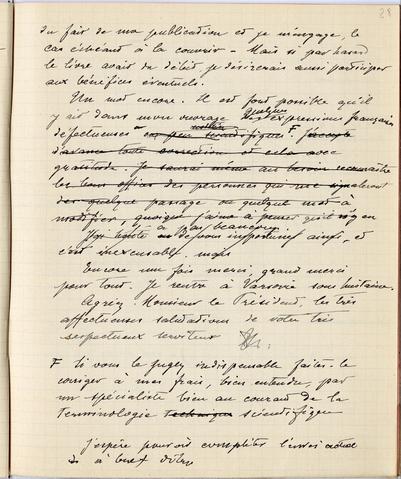 28
du fait de ma publication et je m'engage, le
cas échéant à la couvrir – Mais si par hasard
le livre avait du débit je désirerais aussi participer
aux bénéfices éventuels.
Un mot encore. Il est fort possible qu'il
y ait dans mon ouvrage quelques expressions françaises
défectueuses ou peu scientifiques F. J'accepte
d'avance toute correction et cela avec
gratitude. Je saurai même au besoin reconnaître
les bons offices des personnes qui me signaleront
quelque passage ou quelque mot à
modifier, quoique j'aime à penser qu'il n'y en
a pas beaucoup
ainsi, et
c'est inexcusable. mais
Encore une fois merci, grand merci
pour tout. Je rentre à Varsovie
Agréez, Monsieur le Président, les très
affectueuses salutations de votre très
respectueux serviteur
F si vous le jugez indispensable faites-le
corriger à mes frais, bien entendu, par
un spécialiste bien au courant de la
terminologie technique scientifique
J'espère pouvoir compléter l'envoi actuel
à bref délai